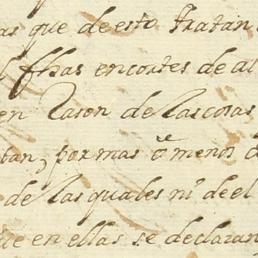 as que de esto tratan
fhas encortes de al
en Rason de las cosas
tan, por mas ò menos d
de las quales ni de el
que en ellas se declaran